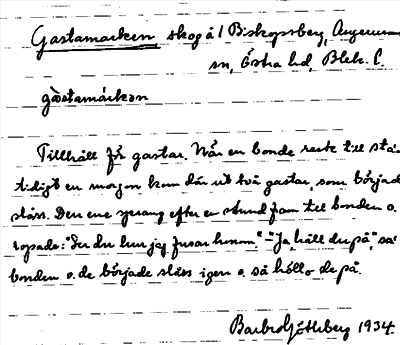 Gastamarken skog å 1 Biskopsberg, Augerums
sn, Östra hd, Blek. l.
gàstamárkən
Tillhåll för gastar. När en bonde reste till sta'n
tidigt en morgon kom där ut två gastar, som började
slåss. Den ene sprang efter en stund fram till bonden o.
ropade: "Ser du hur jag fusar honom". - "Ja, håll du på", sa'
bonden o. de började slåss igen o. så höllo de på.
Barbro Göthberg 1934.